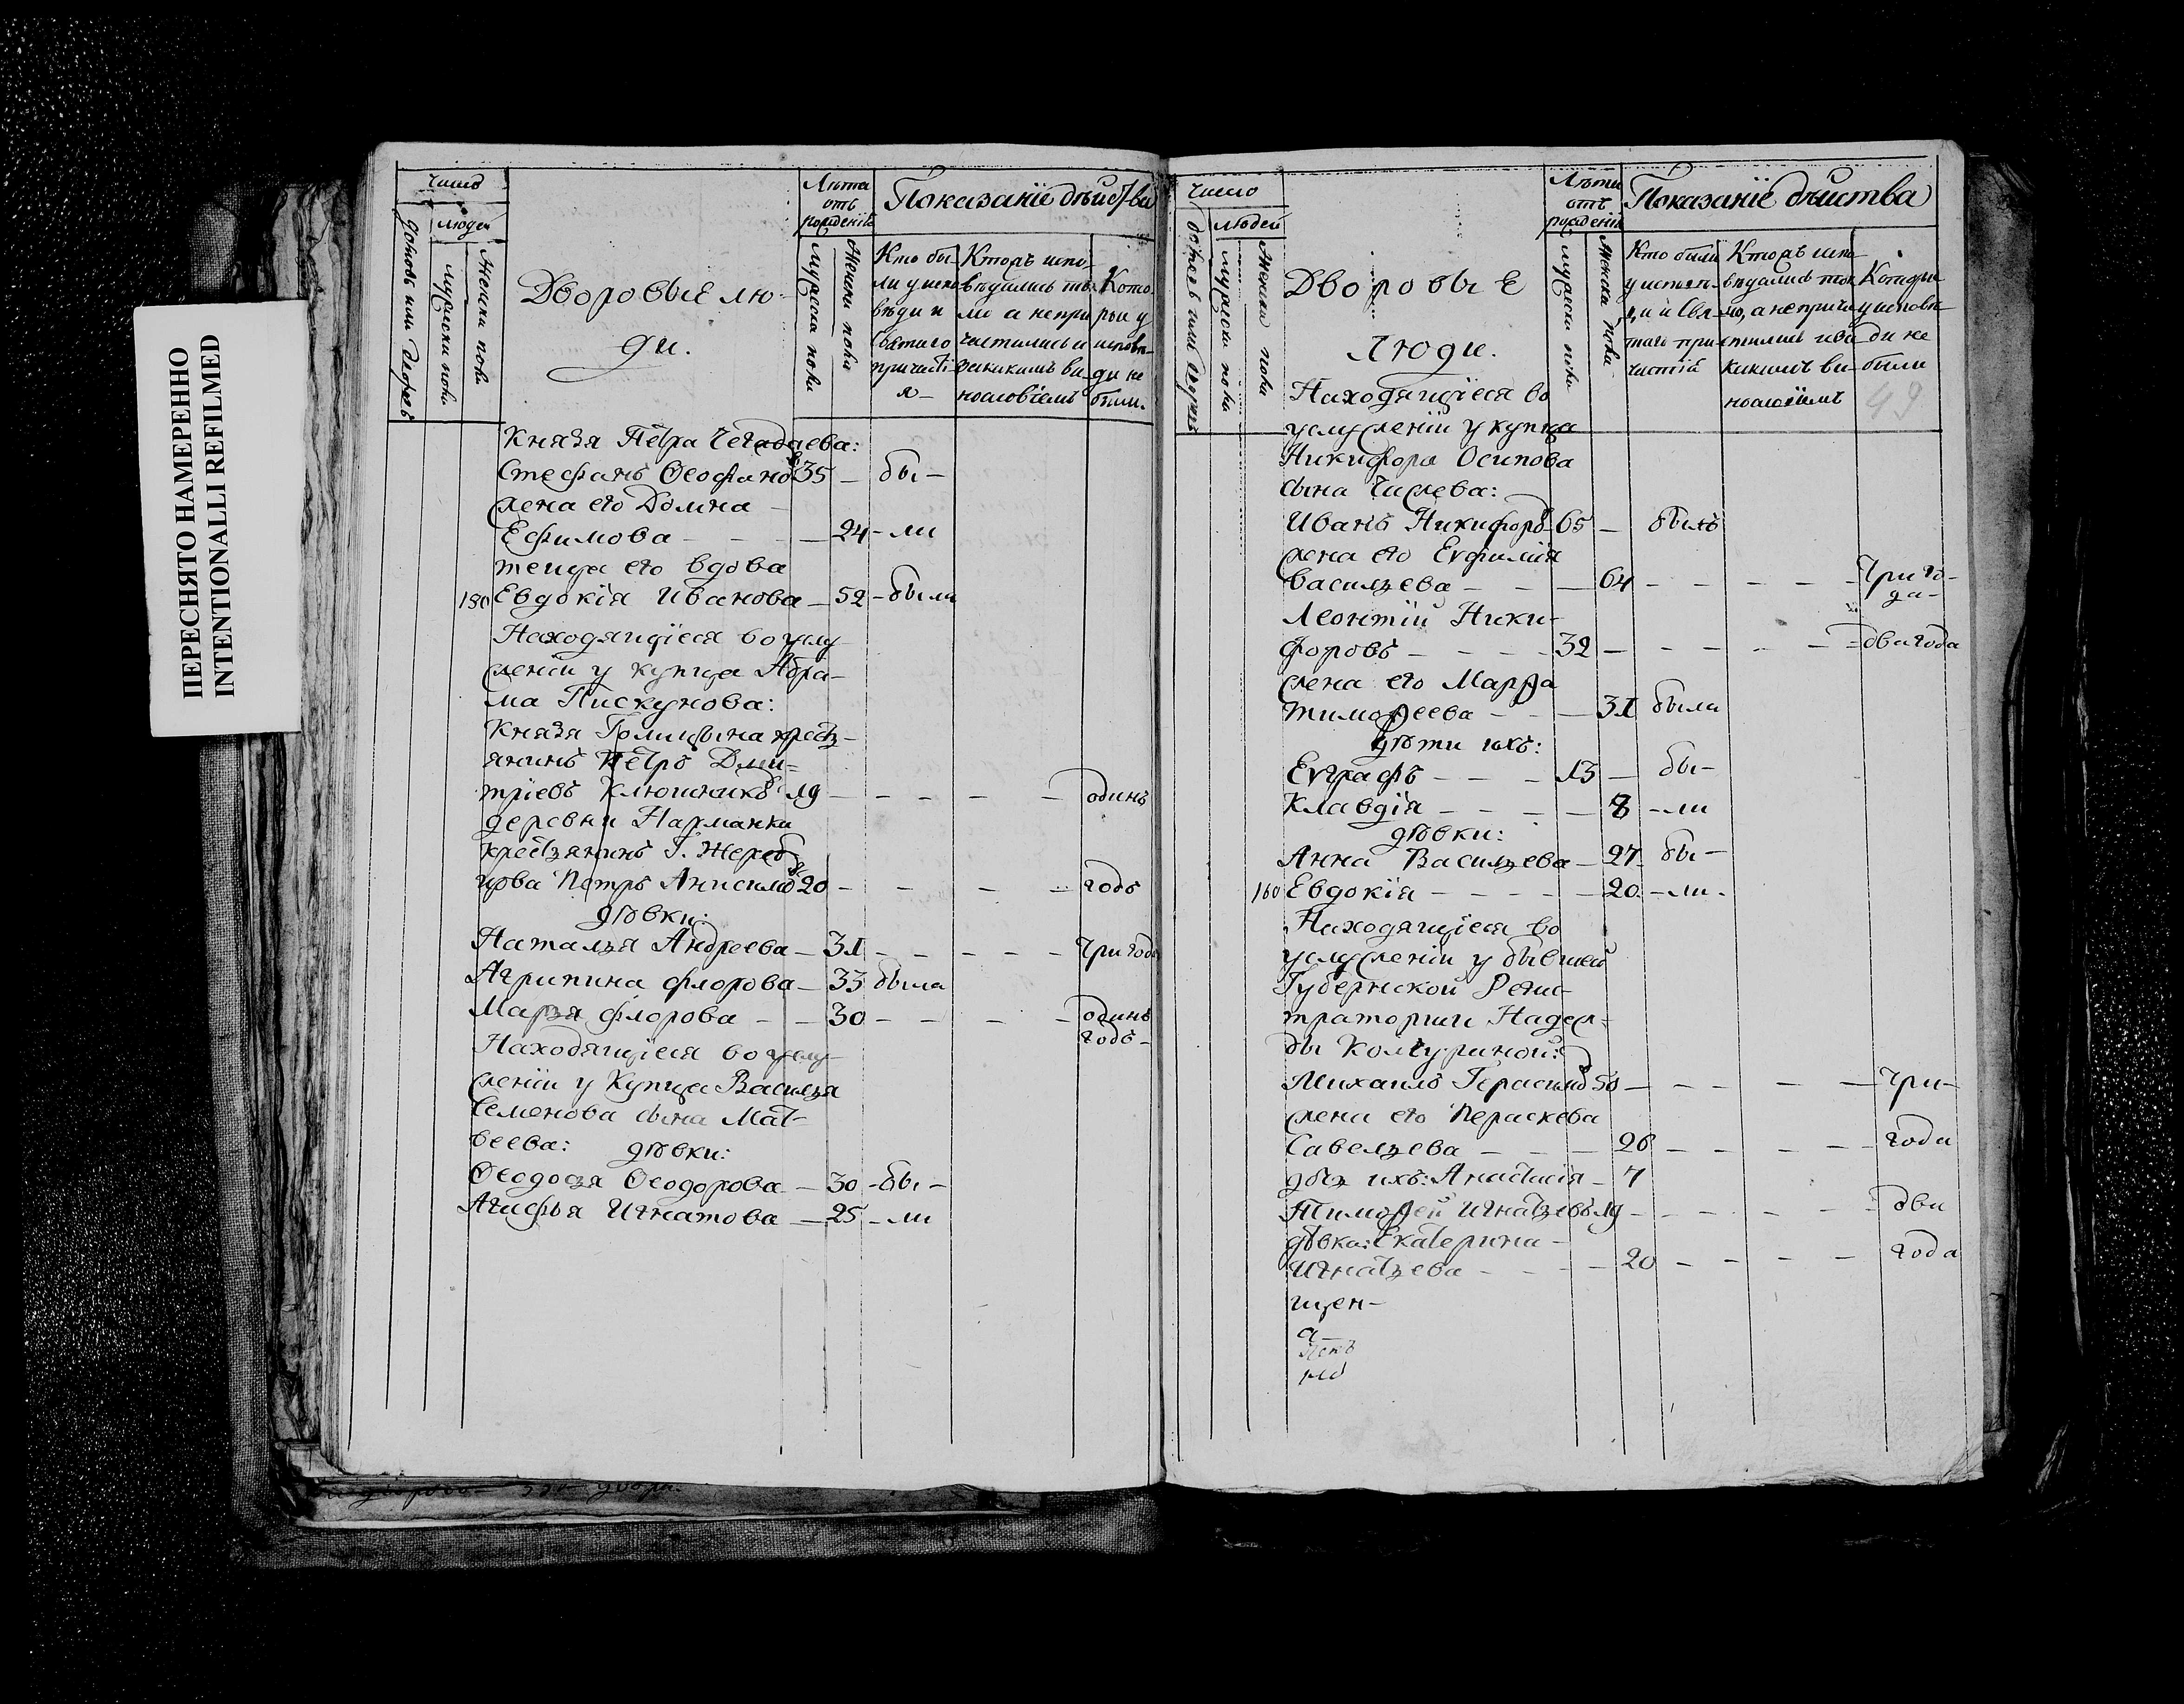 ПЕРЕСНЯТО НАМЕРЕННО
INTENTIONALLI REFILMED
Число
людей
домовъ или дворовъ
мужеска пола
женска пола
Дворовые лю-
ди.
Лѣта
отъ
рожденія
мужеска пола
женска пола
Показаніе дѣйства
Кто бы-
ли у испо-
вѣди и
святаго
причасті-
я
Которые испо-
вѣдались то-
ли а непри
частились и
за какимъ ви-
нословіемъ
Кото-
рыи у
исповѣ-
ди не
были.
Князя Петра Чегадаева:
Стефанъ Ѳеофановъ 35 – бы –
жена его Домна –
Ефимова – – – 24 – ли
теща его вдова
150 Евдокія Иванова – 52 – была
Находящіеся во услу
женіи у купца Абра-
ма Пискунова:
Князя Голицына кресть-
янинъ Петръ Дми=
тріевъ Ключникъ 19 – – – – – одинъ
деревни Нарманки
крестьянинъ Г. Жереб
цова Петръ Анисимовъ 20 – – – – годъ
дѣвки:
Наталья Андреева – 31 – – – – – три года
Агрипина Флорова – 33 была
Марья Флорова – – 30 – – – – одинъ
годъ –
Находящіеся во услу-
женіи у Купца Василья
Семенова сына Мат-
веева: дѣвки:
Ѳеодосья Ѳеодорова – 30 – бы –
Агафья Игнатова – 25 – ли
Число
людей
домовъ или дворовъ
мужеска пола
женска пола
Дворовые
Люди.
Лѣта
отъ
рожденія
мужеска пола
женска пола
Показаніе дѣйства
Кто были
у исповѣ-
ди и свя-
таго при-
частія
Которые испо-
вѣдались ток
мо, а не прича
стились и за
какимъ ви-
нословіемъ
Которыи
у исповѣ-
ди не
были
49
Находящіеся во
услуженіи у купца
Никифора Осипова
сына Чижева:
Иванъ Никифоровъ 65 – былъ
жена его Евфимія
Васильева – – – 64 – – – – – три го-
да –
Леонтій Ники-
форовъ – – – – 32 – – – – – два года
жена его Марфа
Тимофеева – – – 31 была
дѣти ихъ:
Евграфъ – – – 13 – бы –
Клавдія – – – – 8 – ли
дѣвки:
Анна Васильева – 27 – бы –
160 Евдокія – – – – – 20 – ли –
Находящіеся во
услуженіи у бывшей
Губернской Регис-
траторши Надеж-
ды Кологривой:
Михаилъ Герасимовъ 50 – – – – – три –
жена его Пераскева
Савельева – – – 26 – – – – года
дочь ихъ: Анастасія – 7
Тимофей Игнатьевъ 19 – – – – – два
дѣвка: Екатерина –
Игнатьева – – – – 20 – – – – года